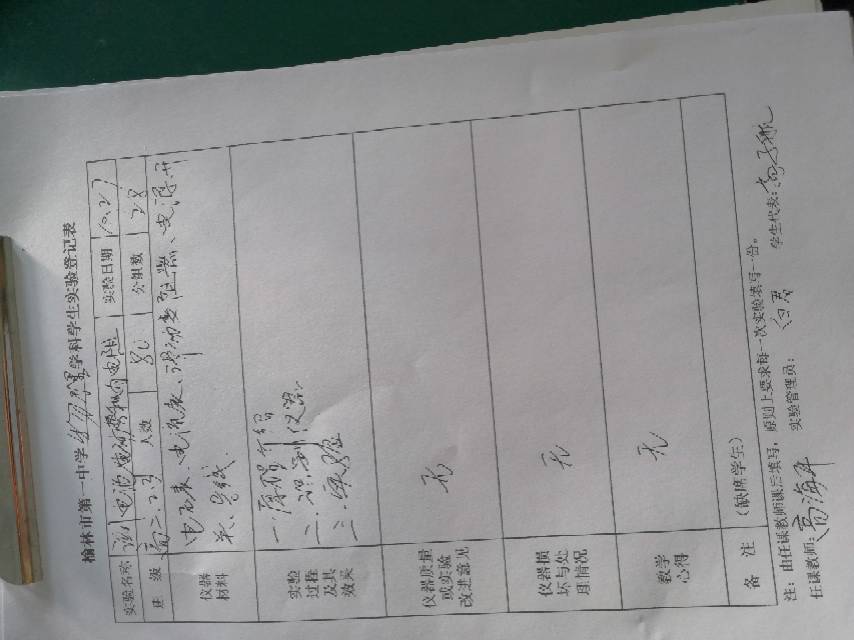 榆林市第一中学物理学科学生实验登记表
实验名称 测电池电动势和内电阻 实验日期 10.27
班 级 高二.2.3 人数 80 分组数 28
仪器
材料
电压表、电流表、滑动变阻器、电源、开
关、导线
实验
过程
及其
效果
一.原理介绍
二.识别仪器
三.实验
仪器质量
或实验
改进意见
无
仪器损
坏与处
理情况
无
教学
心得
无
备 注 (缺席学生)
注：由任课教师课后填写，原则上要求每一次实验填写一份。
任课教师：高海平 实验管理员： 学生代表：